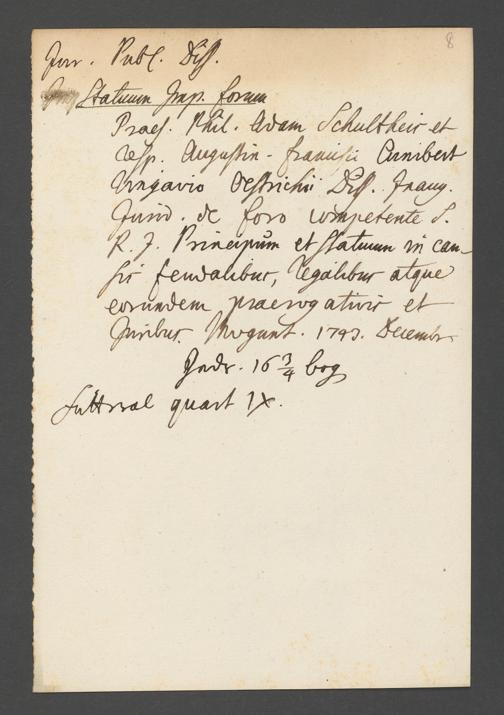 8
Jur. Publ. Diss.
Statuum Imp. forum
Praes. Phil. Adam Schultheis et
resp. Augustin. Francisc. Cunibert
Ringavio Oestrichii Diss. Inaug.
Jurid. de foro competente S.
R. I. Principum et Statuum in cau-
sis feudalibus, regalibus atque
eorundem praerogativis et
juribus. Mogunt. 1793. Decembr.
16 3/4 bog
quart IX.